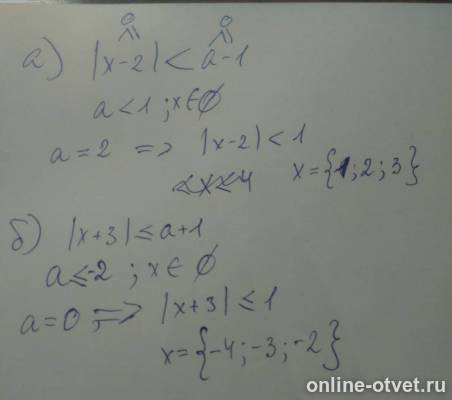 0 0
а) |x-2| < a-1
a < 1 ; x ∈ ∅
a = 2 => |x-2| < 1
x = {1; 2; 3}
б) |x+3| ≤ a+1
a ≤ -2 ; x ∈ ∅
a = 0 => |x+3| ≤ 1
x = {-4; -3; -2}
online-otvet.ru